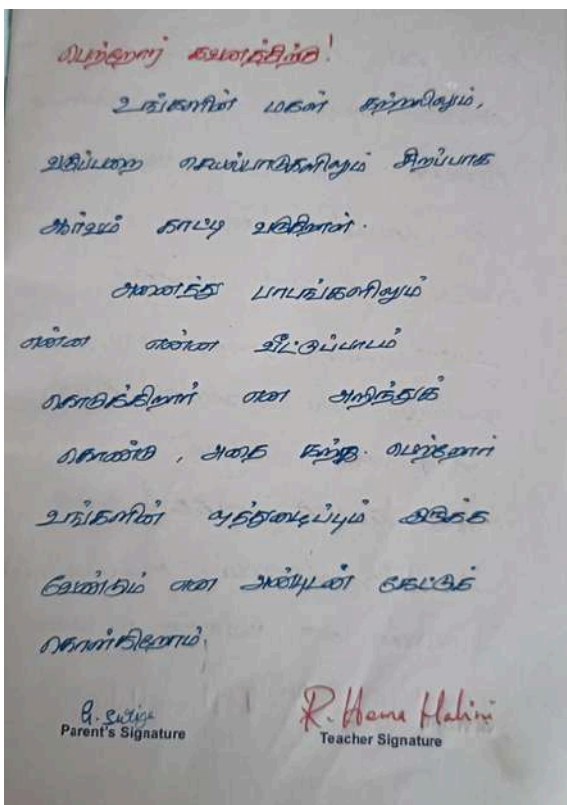 பெற்றோர் கவனத்திற்கு!
உங்களின் மகள் கற்றலிலும்,
வகுப்பறை செயல்பாடுகளிலும் சிறப்பாக
ஆர்வம் காட்டி வருகிறாள்.
அனைத்து பாடங்களிலும்
என்ன என்ன வீட்டுப்பாடம்
கொடுக்கிறார் என அறிந்துக்
கொண்டு, அதை கற்று. பெற்றோர்
உங்களின் ஒத்துழைப்பும் இருக்க
வேண்டும் என அன்புடன் கேட்டுக்
கொள்கிறோம்.
R. Hema Malini
Parent's Signature
Teacher Signature